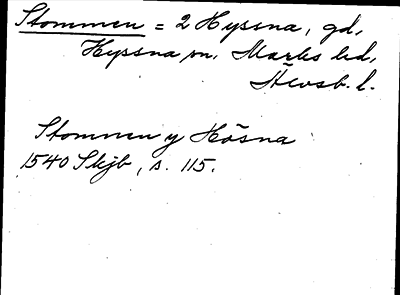 Stommen = 2 Hyssna, gd,
Hyssna sn, Marks hd,
Älvsb. l.
Stommen y Hösna
1540 Skjb, s. 115.